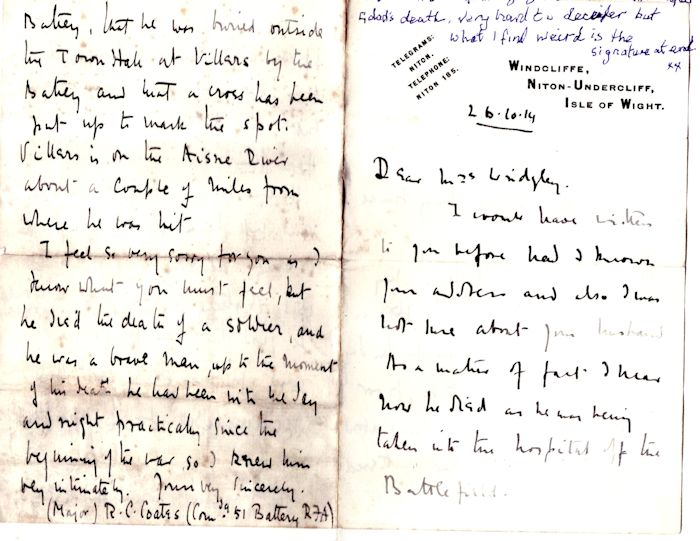 Dad's death, very hard to deceifer but
what I find weird is the
signature at end
xx
TELEGRAMS:
NITON.
TELEPHONE:
NITON 185.
WINDCLIFFE,
NITON-UNDERCLIFF,
ISLE OF WIGHT.
26.10.14
Dear Mrs Widgley.
I would have written
to you before had I known
your address and also I was
not sure about your husband
As a matter of fact I hear
now he died as he was being
taken into the hospital off the
Battlefield.
Battery, but he was buried outside
the Town Hall at Villars by the
Battery and that a cross has been
put up to mark the spot.
Villars is on the Aisne River
about a couple of miles from
where he was hit
I feel so very sorry for you as I
know what you must feel, but
he died the death of a soldier, and
he was a brave man, up to the moment
of his death he had been with me day
and night practically since the
beginning of the war so I knew him
very intimately. Yours very sincerely.
(Major) R.C. Coates (Comdg 51 Battery RFA)